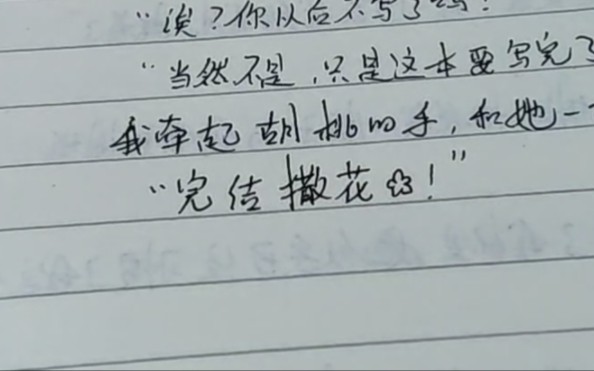 “诶？你以后不写了吗？
“当然不是，只是这本要写完了
我牵起胡桃的手，和她一
“完结撒花✿！”